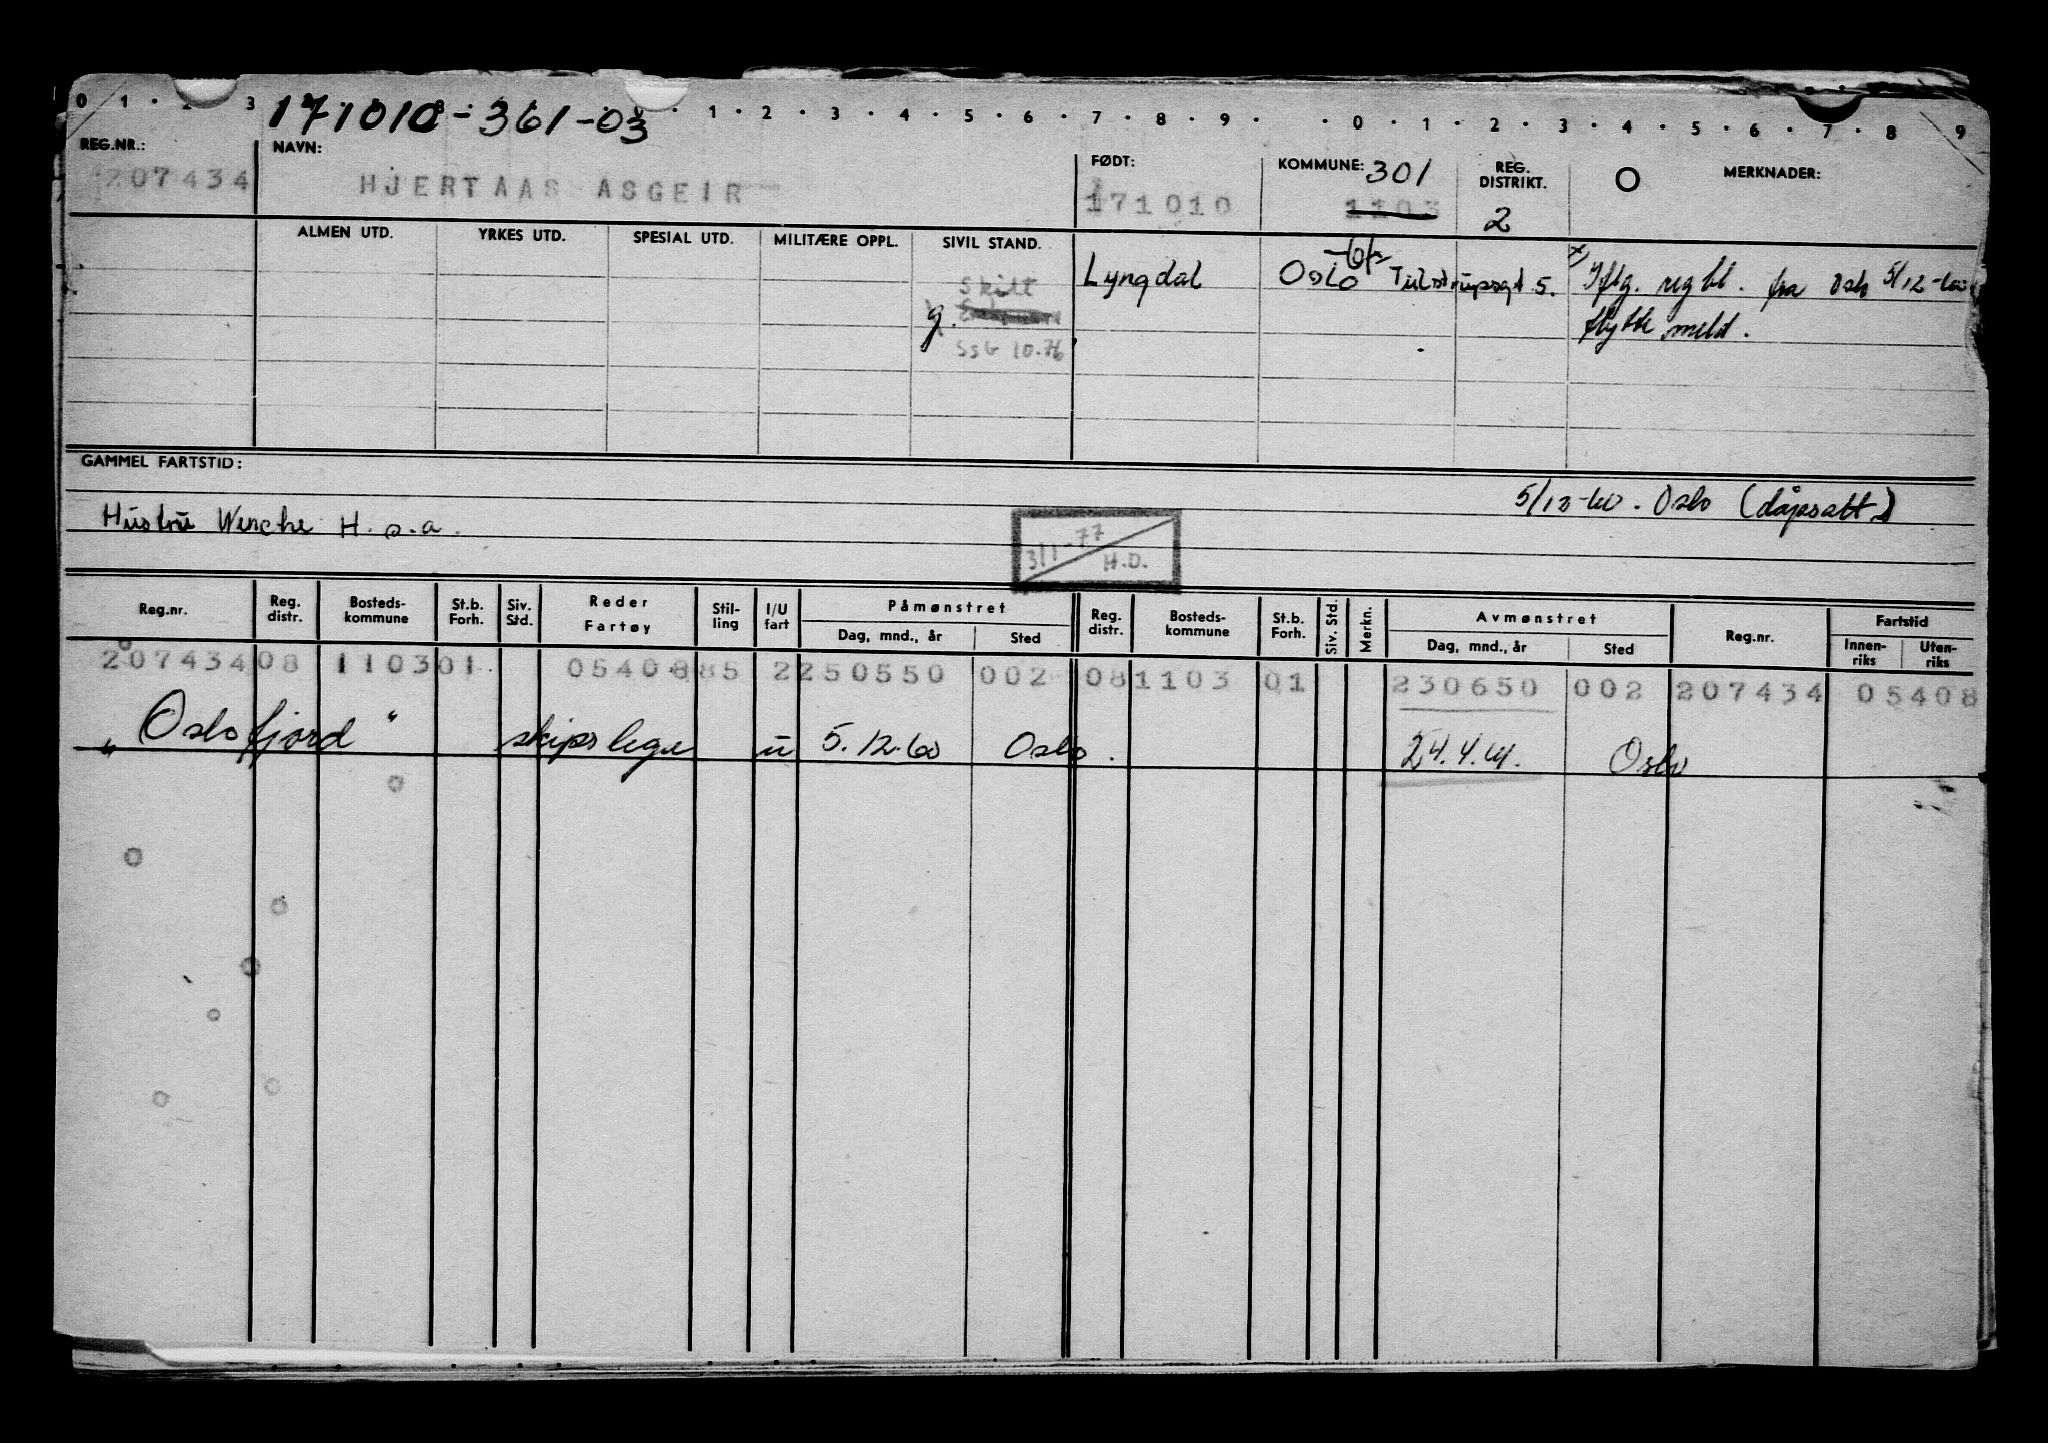 0 1 · 2 3 · 1 · 2 · 3 · 4 · 5 · 6 · 7 · 8 · 9 · · 0 · 1 · 2 · 3 · 4 · 5 · 6 · 7 · 8 9
171010-361-03
REG.NR.: NAVN: FØDT: KOMMUNE: 301 REG. DISTRIKT. O MERKNADER:
207434 HJERTAAS ASGEIR 171010 1103 2
ALMEN UTD. YRKES UTD. SPESIAL UTD. MILITÆRE OPPL. SIVIL STAND.
Lyngdal Oslo 5. Iflg. regbl. fra Oslo 5/12-60
Skilt
g.
flytte meld.
SSG 10.76
GAMMEL FARTSTID:
5/12-60. Oslo (dåpsatt.)
Hustru Wenche H. s.a.
3/1-77 H.D.
Reg.nr. Reg. distr. Bosteds-kommune St.b. Forh. Siv. Std. Reder Fartøy Stil-ling I/U fart Påmønstret Reg. distr. Bosteds-kommune St.b. Forh. Siv. Std. Merkn. Avmønstret Reg.nr. Fartstid
Dag, mnd., år Sted Dag, mnd., år Sted Innen-riks Uten-riks
207434 08 1103 01 05408 85 2 250550 002 08 1103 01 230650 002 207434 05408
„Oslofjord" skipslege u 5.12.60 Oslo. 24.4.61. Oslo